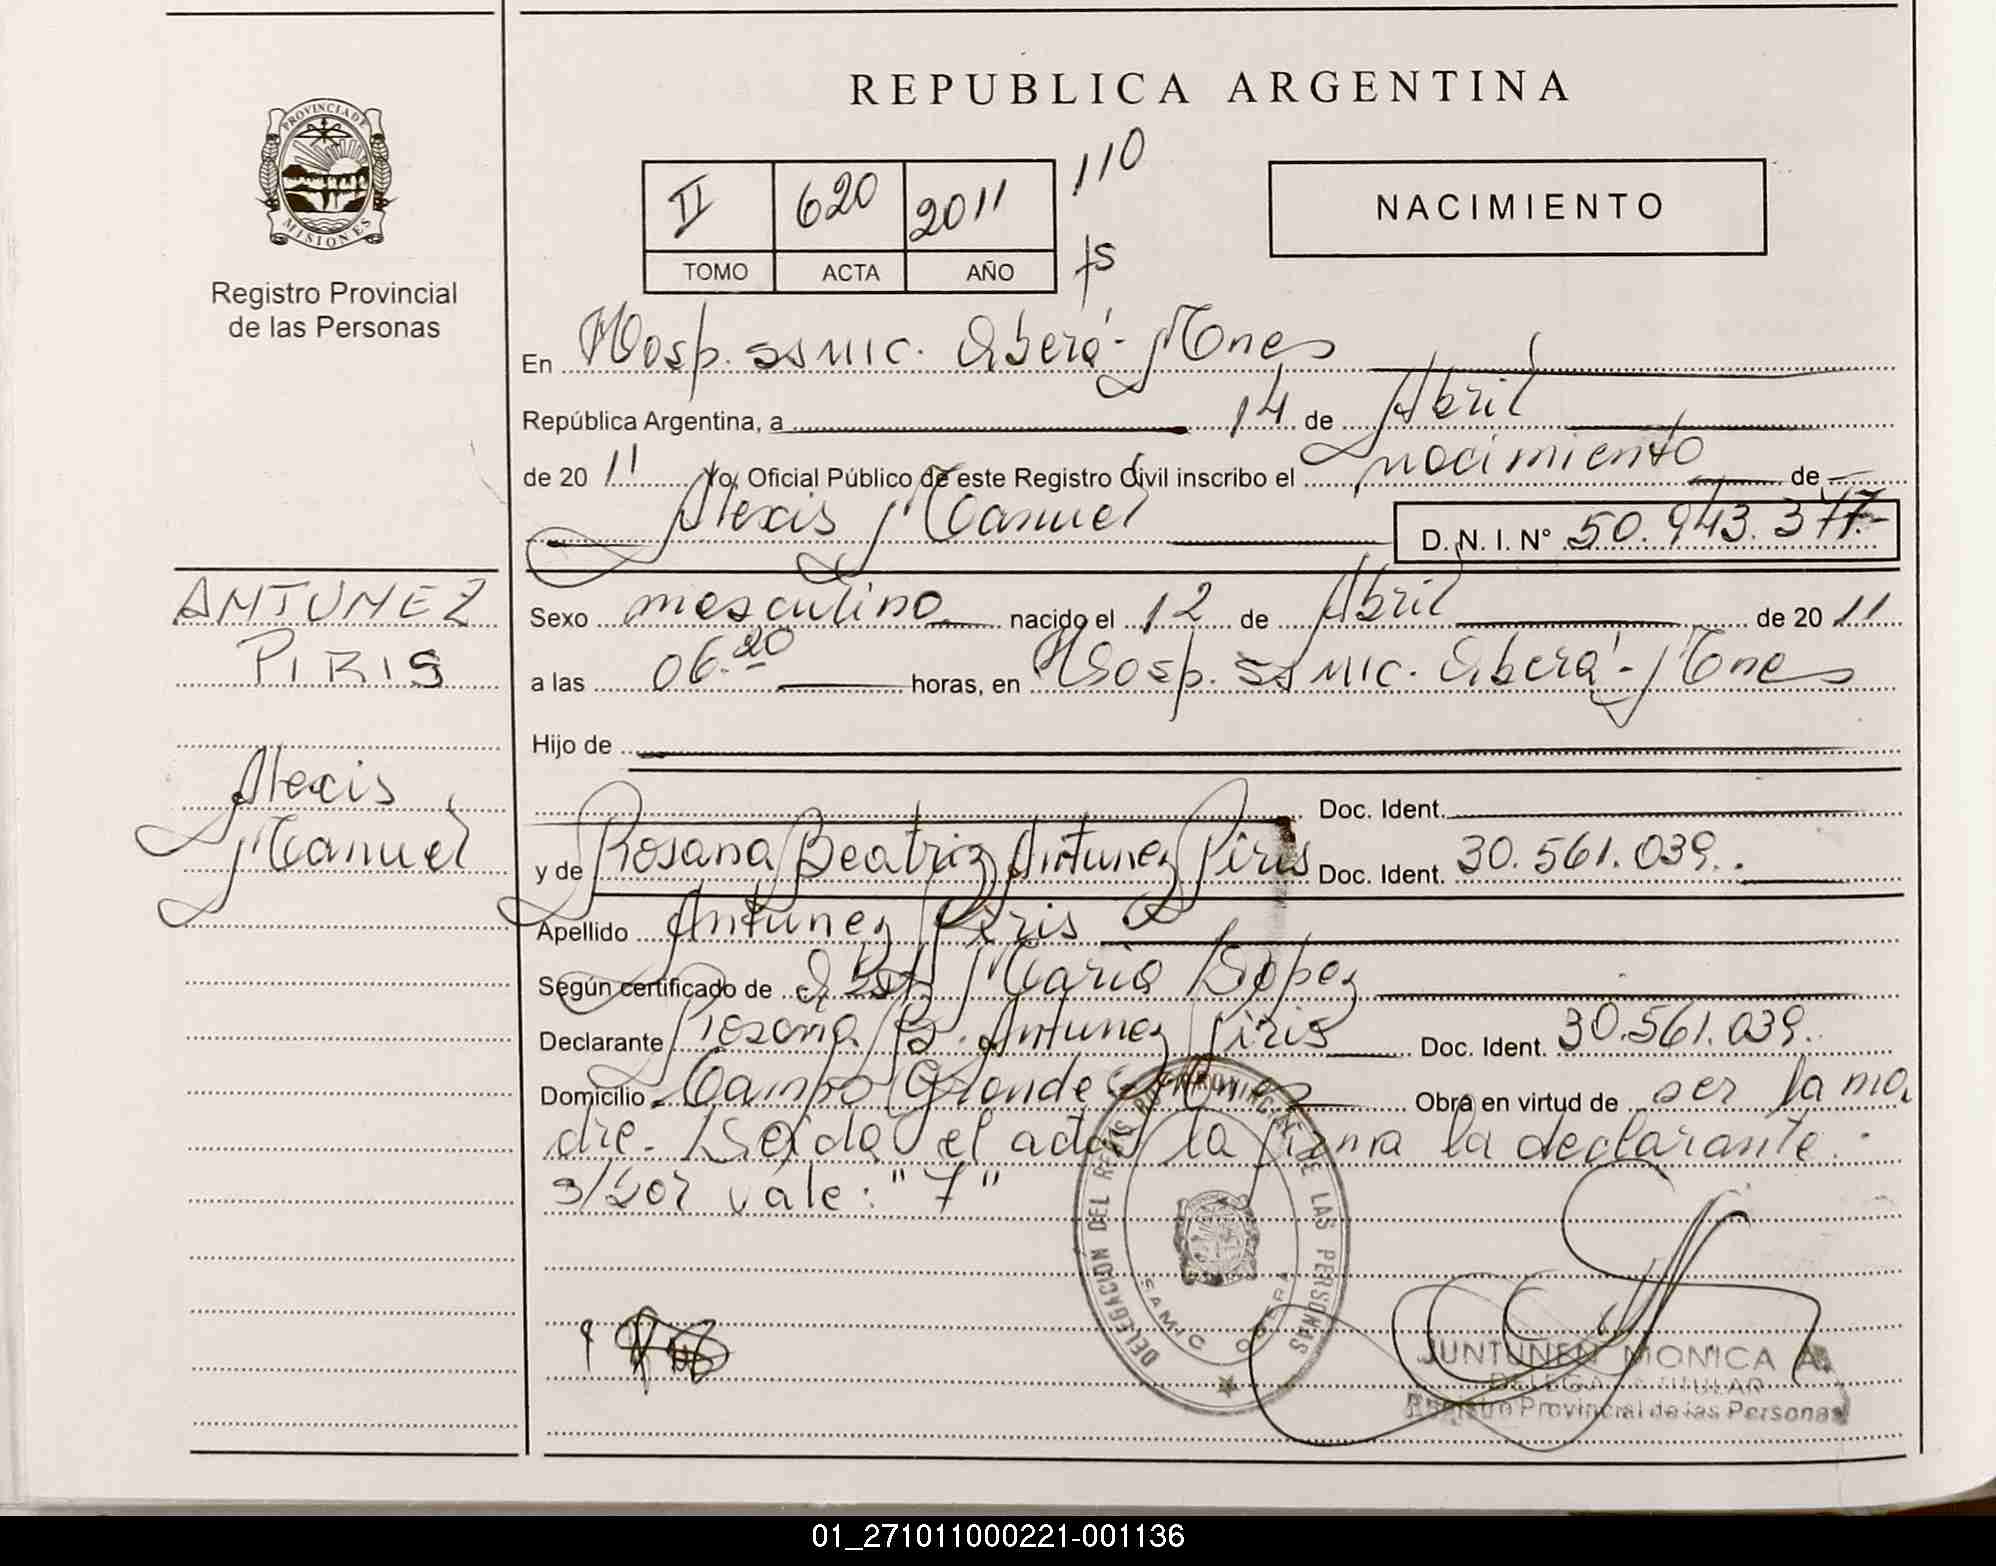 REPUBLICA ARGENTINA
PROVINCIA DE
MISIONES
Registro Provincial
de las Personas
II 620 2011 110
TOMO ACTA AÑO fs
NACIMIENTO
En Hosp. ss mic. Oberá - Mnes
República Argentina, a 14 de Abril
de 20 11 Yo, Oficial Público de este Registro Civil inscribo el nacimiento de
Alexis Manuel D.N.I. Nº 50.943.377.-
ANTUNEZ
PIRIS
Alexis
Manuel
Sexo masculino nacido el 12 de Abril de 20 11
a las 06.20 horas, en Hosp. ss mic. Oberá - Mnes
Hijo de
Doc. Ident.
y de Rosana Beatriz Antunez Piris Doc. Ident. 30.561.039.
Apellido Antunez Piris
Según certificado de Obst Maria Lopez
Declarante Rosana B. Antunez Piris Doc. Ident. 30.561.039.
Domicilio Campo Grande Mnes Obra en virtud de ser la ma
dre. Leida el acta la firma la declarante.
s/bor vale: "7"
DELEGACION DEL REGISTRO PROVINCIAL DE LAS PERSONAS
SAMIC OBERA
JUNTUNEN MONICA A.
DELEGADA TITULAR
Registro Provincial de las Personas
01_271011000221-001136